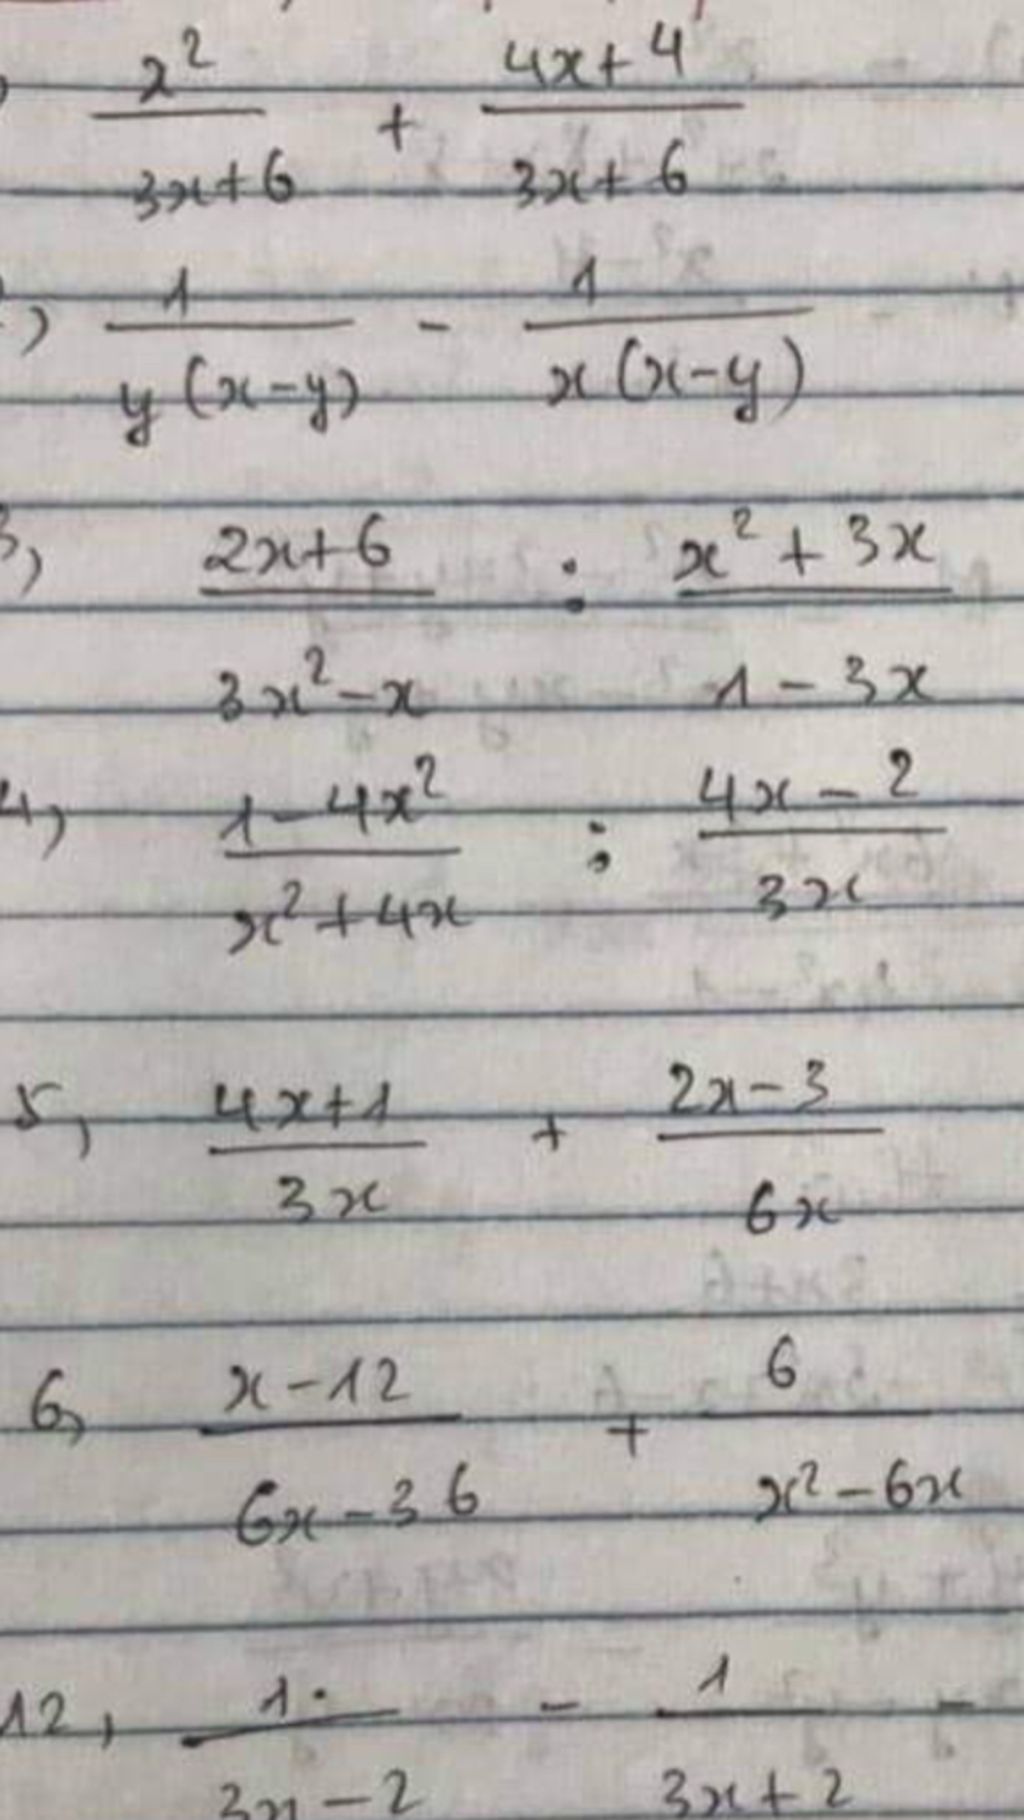 x² / 3x+6 + 4x+4 / 3x+6
) 1 / y(x-y) - 1 / x(x-y)
3, 2x+6 / 3x²-x : x²+3x / 1-3x
4, 1-4x² / x²+4x : 4x-2 / 3x
5, 4x+1 / 3x + 2x-3 / 6x
6, x-12 / 6x-36 + 6 / x²-6x
12, 1 / 3x-2 - 1 / 3x+2 -